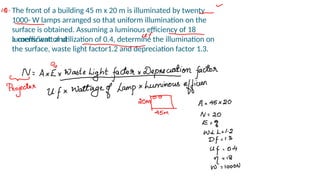 18. The front of a building 45 m x 20 m is illuminated by twenty
1000- W lamps arranged so that uniform illumination on the
surface is obtained. Assuming a luminous efficiency of 18
a coefficient of utilization of 0.4, determine the illumination on
the surface, waste light factor1.2 and depreciation factor 1.3.
N = A x E x Waste Light factor x Depreciation factor
Projector
Uf x Wattage of Lamp x Luminous efficien
20m
45m
A = 45 x 20
N = 20
E = ?
W L L = 1.2
Df = 1.3
Uf = 0.4
η = 18
W = 1000W